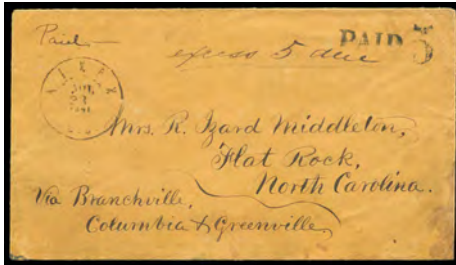 Paid
PAID 5
excess 5 due
AIKEN
Mrs. R. Izard Middleton,
Flat Rock,
North Carolina.
Via Branchville,
Columbia & Greenville,